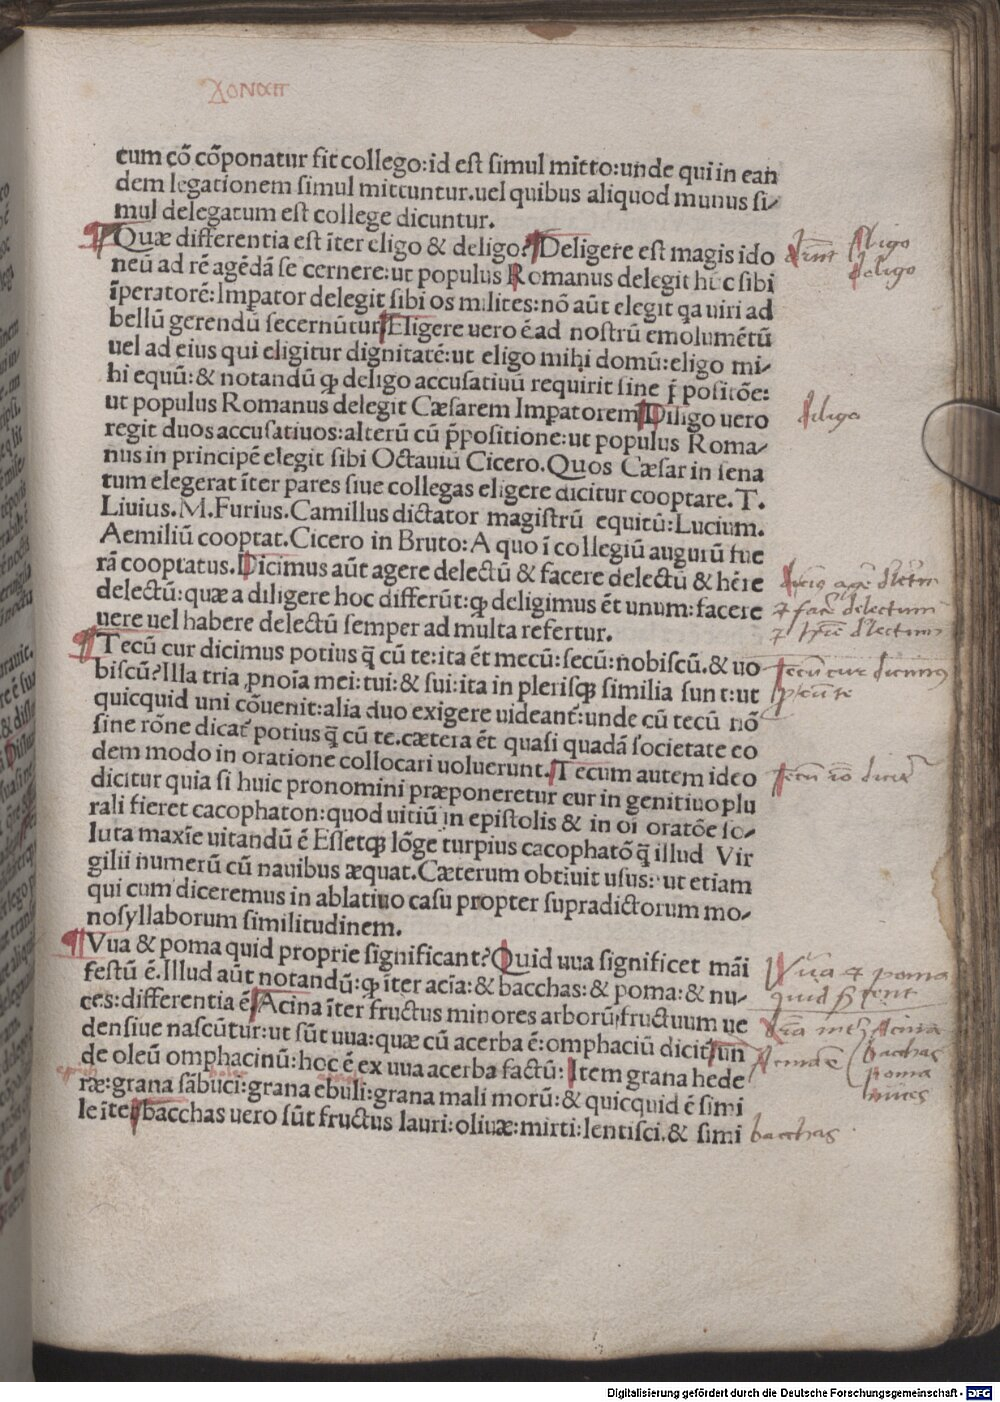 cum cõ cõponatur fit collego:id est simul mitto:unde qui in ean
dem legationem simul mittuntur.uel quibus aliquod munus si/
mul delegatum est college dicuntur.
Quæ differentia est īter eligo & deligo? Deligere est magis ido
neū ad rē agēdā se cernere:ut populus Romanus delegit hūc sibi
īperatorē:Impator delegit sibi os milites:nō aūt elegit qa uiri ad
bellū gerendū secernūtur Eligere uero ē ad nostrū emolumētū
uel ad eius qui eligitur dignitatē:ut eligo mihi domū:eligo mi/
hi equū:& notandū ꝙ deligo accusatiuū requirit sine p̄ positōe:
ut populus Romanus delegit Cæsarem Impatorem Diligo uero
regit duos accusatiuos:alterū cū p̄positione:ut populus Roma/
nus in principē elegit sibi Octauiū Cicero.Quos Cæsar in sena
tum elegerat īter pares siue collegas eligere dicitur cooptare.T.
Liuius.M.Furius.Camillus dictator magistrū equitū:Lucium.
Aemiliū cooptat.Cicero in Bruto:A quo ī collegiū augurū fue
rā cooptatus.Dicimus aūt agere delectū & facere delectū & hēre
delectū:quæ a diligere hoc differūt:ꝙ deligimus ēt unum:facere
uere uel habere delectū semper ad multa refertur.
Tecū cur dicimus potius q̄ cū te:ita ēt mecū:secū:nobiscū.& uo
biscū?Illa tria ꝓnoīa mei:tui:& sui:ita in plerisꝙ similia sunt:ut
quicquid uni cōuenit:alia duo exigere uideant̄:unde cū tecū nō
sine rōne dicat̄ potius q̄ cū te.cætera ēt quasi quadā societate eo
dem modo in oratione collocari uoluerunt.Tecum autem ideo
dicitur quia si huic pronomini præponeretur cur in genitiuo plu
rali fieret cacophaton:quod uitiū in epistolis & in oī oratōe so/
luta maxīe uitandū ē Essetꝙ lōge turpius cacophatō q̄ illud Vir
gilii numerū cū nauibus æquat.Cæterum obtiuit usus:ut etiam
qui cum diceremus in ablatiuo casu propter supradictorum mo/
nosyllaborum similitudinem.
Vua & poma quid proprie significant?Quid uua significet māi
festū ē.Illud aūt notandū:ꝙ īter acīa:& bacchas:& poma:& nu/
ces:differentia ē.Acina īter fructus minores arborū:fructuum ue
densiue nascūtur:ut sūt uua:quæ cū acerba ē:omphaciū dicit̄ un
de oleū omphacinū:hoc ē ex uua acerba factū: Item grana hede
ræ:grana sābuci:grana ebuli:grana mali morū:& quicquid ē simi
le īter bacchas uero sūt fructus lauri:oliuæ:mirti:lentisci.& simi
eligo
deligo
deligo
Tecū cur dicimus
Vua & poma
Acina
bacchas
poma
nuces
bacchas
Digitalisierung gefördert durch die Deutsche Forschungsgemeinschaft - DFG